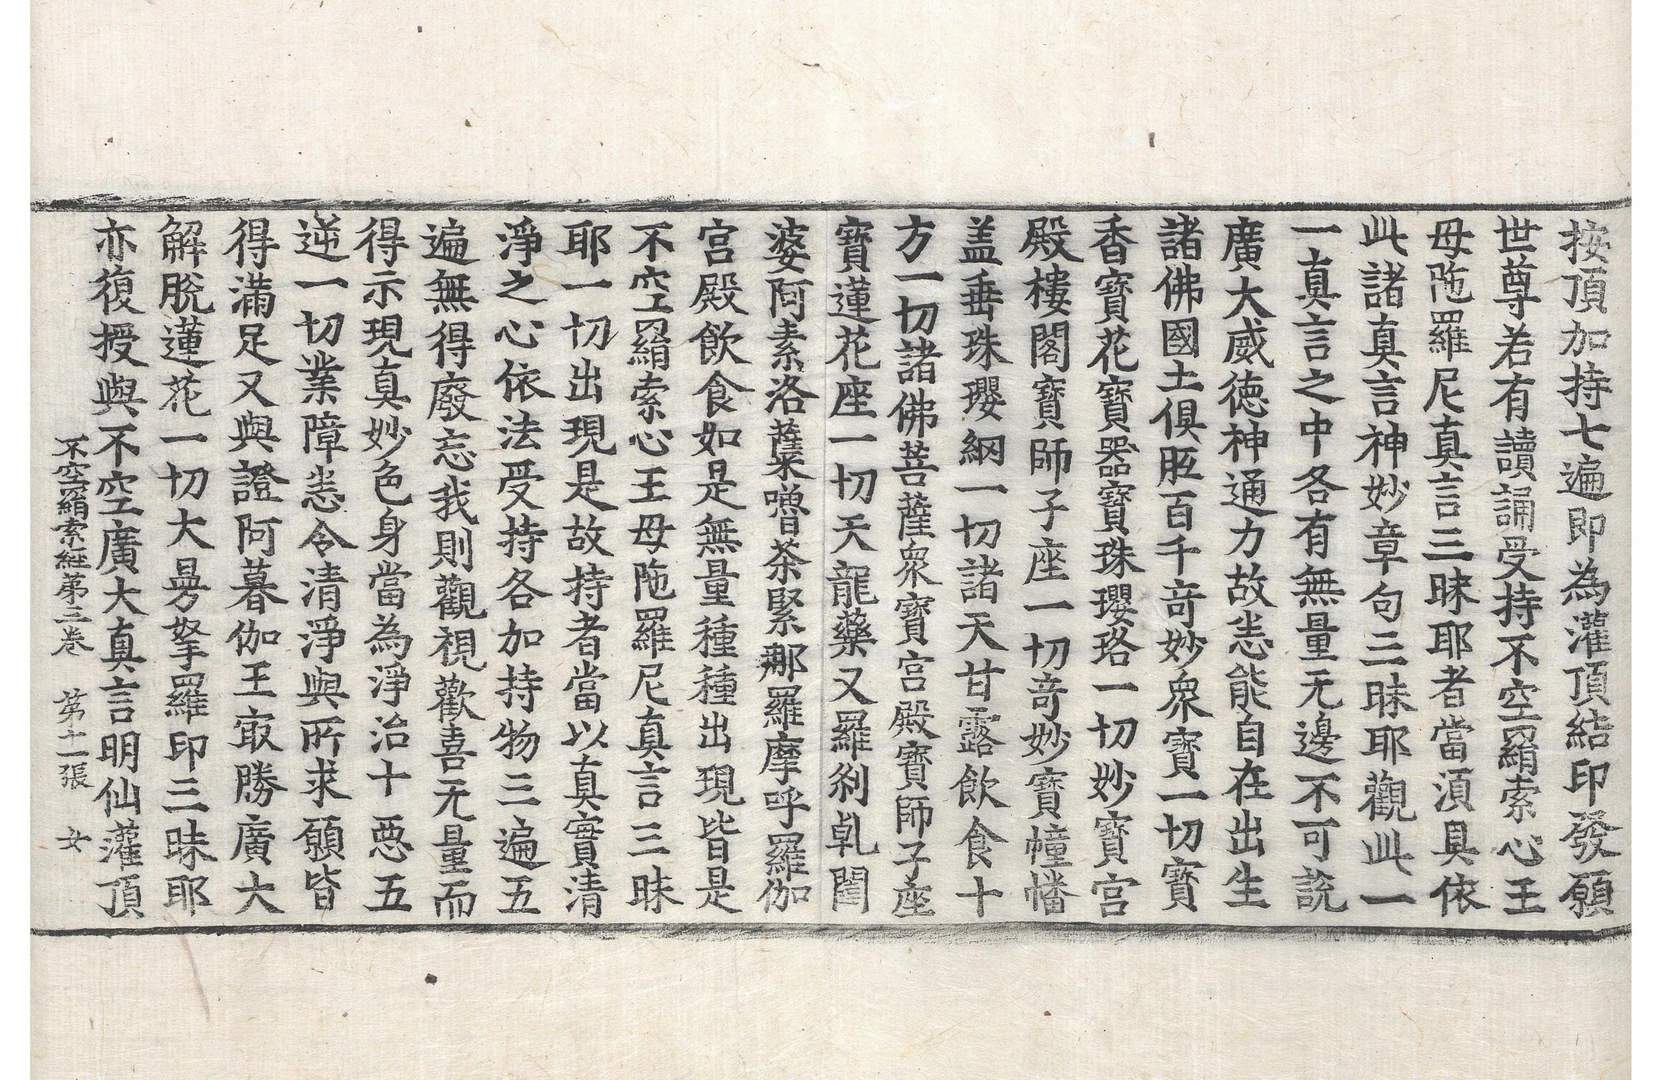 按頂加持七遍即為灌頂結印發願
世尊若有讀誦受持不空羂索心王
母陁羅尼真言三昧耶者當湏具依
此諸真言神妙章句三昧耶觀此一
一真言之中各有無量无邊不可說
廣大威德神通力故悉能自在出生
諸佛國土俱胝百千竒妙衆寶一切寶
香寶花寶器寶珠瓔珞一切妙寶宮
殿樓閣寶師子座一切竒妙寶幢幡
盖垂珠瓔網一切諸天甘露飲食十
方一切諸佛菩薩衆寶宮殿寶師子座
寶蓮花座一切天龍藥叉羅刹乹闥
婆阿素洛蘖嚕茶緊那羅摩呼羅伽
宮殿飲食如是無量種種出現皆是
不空羂索心王母陁羅尼真言三昧
耶一切出現是故持者當以真實清
淨之心依法受持各加持物三遍五
遍無得廢忘我則觀視歡喜无量而
得示現真妙色身當為淨治十惡五
逆一切業障悉令清淨與所求願皆
得滿足又與證阿暮伽王㝡勝廣大
解脫蓮花一切大曼拏羅印三昧耶
亦復授與不空廣大真言明仙灌頂
不空羂索經第三卷 第十一張 女